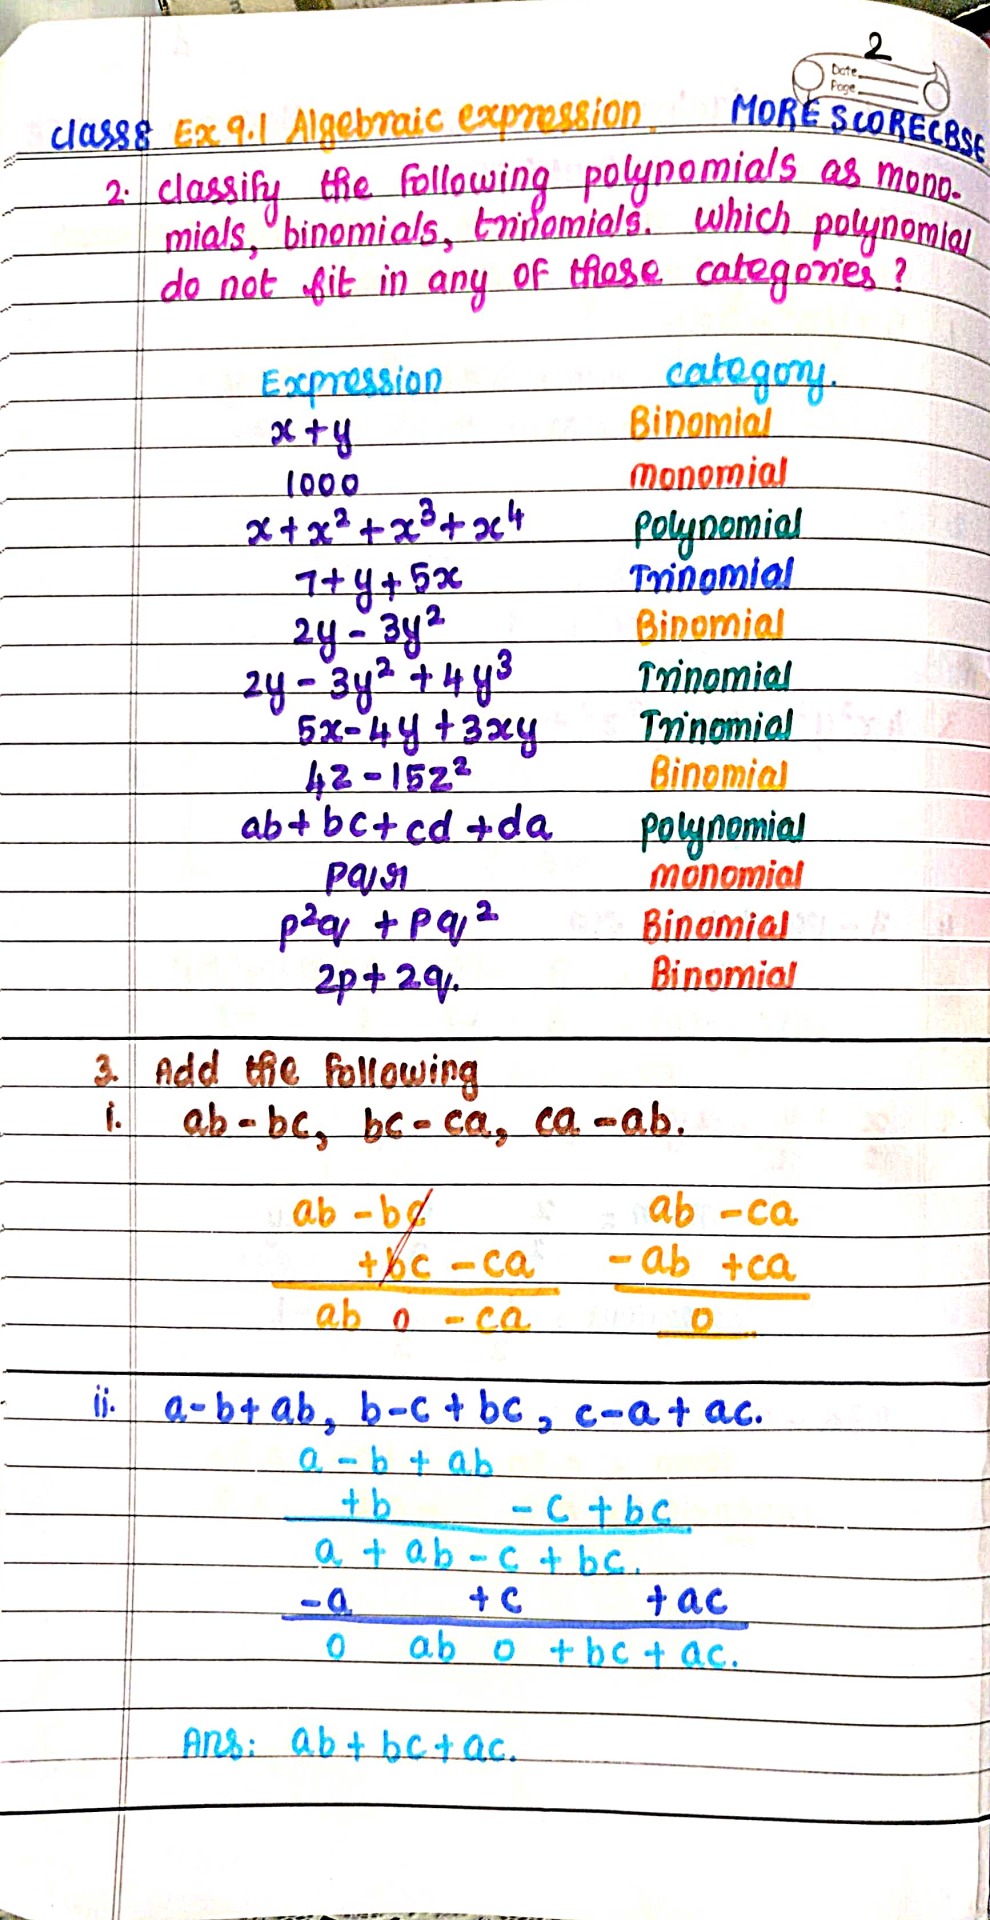 2
Date
Page
class 8 Ex 9.1 Algebraic expression. MORE SCORE CBSE
2. classify the following polynomials as mono-
mials, binomials, trinomials. Which polynomial
do not fit in any of these categories?
Expression category.
x + y Binomial
1000 monomial
x + x² + x³ + x⁴ polynomial
7 + y + 5x Trinomial
2y - 3y² Binomial
2y - 3y² + 4y³ Trinomial
5x - 4y + 3xy Trinomial
4z - 15z² Binomial
ab + bc + cd + da polynomial
pqr monomial
p²q + pq² Binomial
2p + 2q. Binomial
3. Add the following
i. ab - bc, bc - ca, ca - ab.
ab - bc ab - ca
+bc - ca - ab + ca
ab 0 - ca 0
ii. a - b + ab, b - c + bc, c - a + ac.
a - b + ab
+ b - c + bc
a + ab - c + bc.
- a + c + ac
0 ab 0 + bc + ac.
Ans: ab + bc + ac.